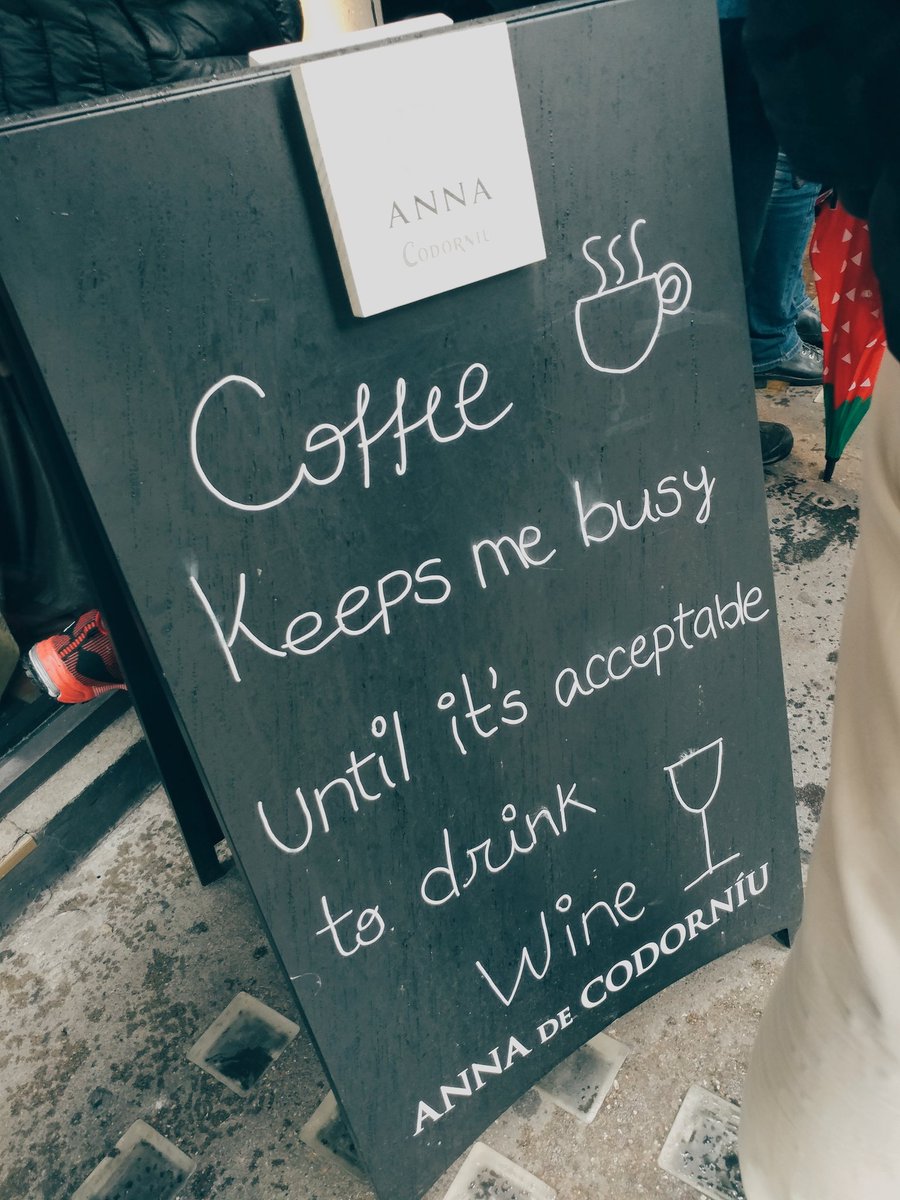 ANNA
CODORNÍU
Coffee
Keeps me busy
Until it's acceptable
to drink
Wine
ANNA DE CODORNÍU